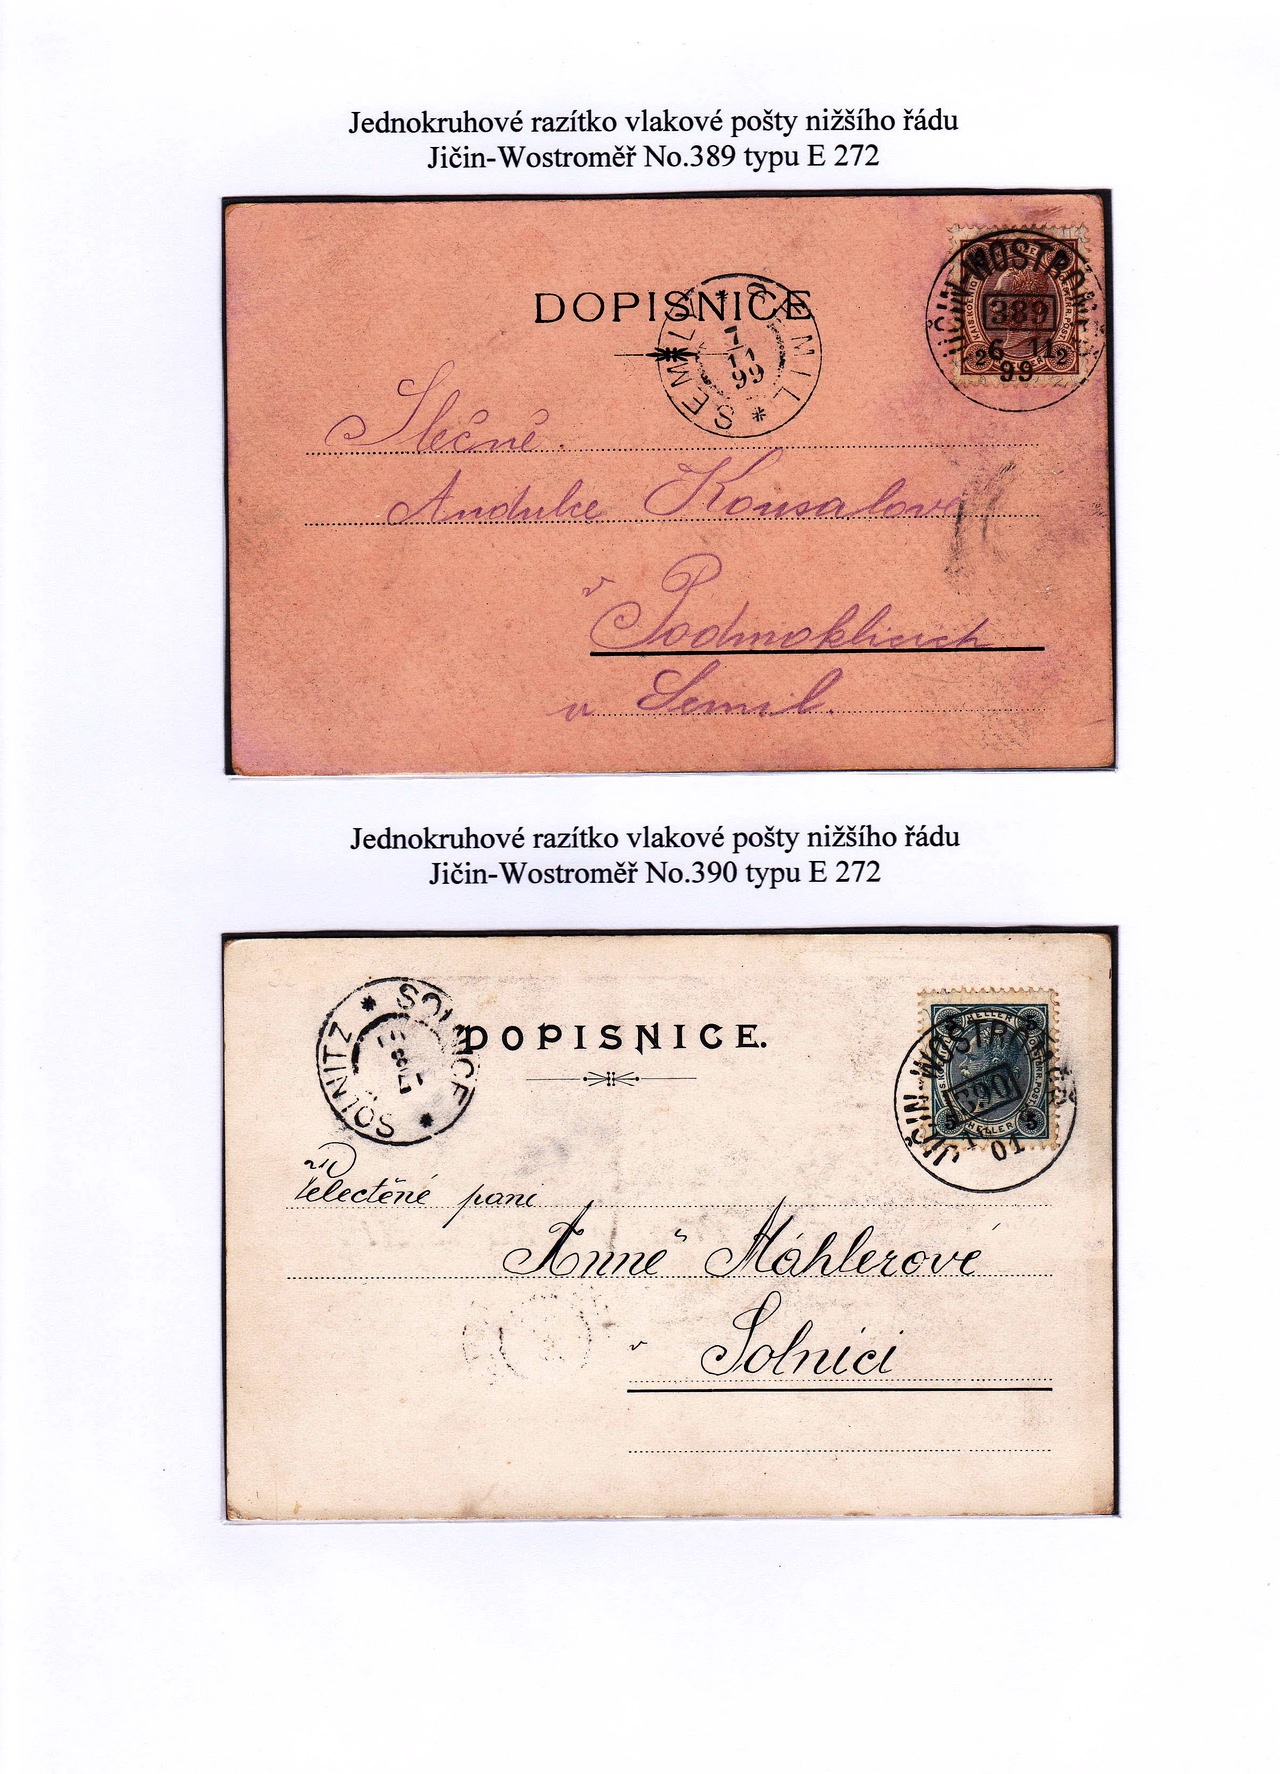 Jednokruhové razítko vlakové pošty nižšího řádu
Jičin-Wostroměř No.389 typu E 272
DOPISNICE
JIČIN-WOSTROMĚŘ
389
6 11
99
KAIS. KÖNIGL. OESTERR. POST
2 HELLER 2
SEMIL * SEMILY *
7
11
99
Slečně
Andulce Kousalové
v Podmoklicích
u Semil.
Jednokruhové razítko vlakové pošty nižšího řádu
Jičin-Wostroměř No.390 typu E 272
DOPISNICE.
SOLNICE * SOLNITZ *
JIČIN-WOSTROMĚŘ
390
01
5 HELLER 5
5 HELLER 5
paní
Anně Máhlerové
v Solnici